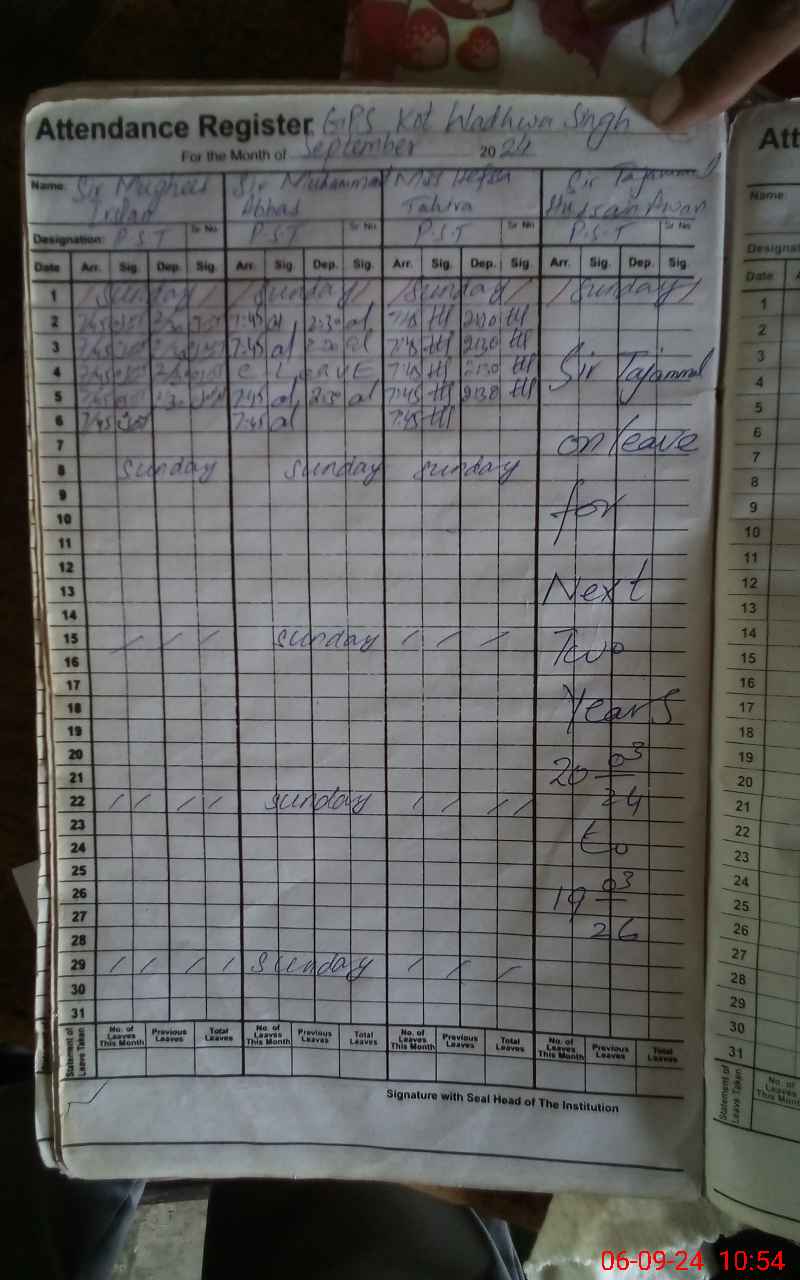 Attendance Register GPS Kot Wadhwa Singh
For the Month of September 2024
Name: Sir Mughees Sir Muhammad Miss Hefsa Sir Tajammal
Irfan Abbas Tahira Hussan Awan
Designation: P.S.T Sr No. P.S.T Sr No. P.S.T Sr No. P.S.T Sr No.
Date Arr. Sig. Dep. Sig. Arr. Sig. Dep. Sig. Arr. Sig. Dep. Sig. Arr. Sig. Dep. Sig.
1 / Sunday / / Sunday / / Sunday / / Sunday /
2 7:45 2:30 7:45 al 2:30 al 7:45 2:30
3 7:45 2:30 7:45 al al 7:45 2:30
4 7:45 2:30 C LeavE 7:45 2:30 Sir Tajammal
5 7:45 7:45 al 2:30 al 7:45 2:30
6 7:45 7:45 al 7:45
7 on leave
8 Sunday Sunday Sunday
9 for
10
11
12
13 Next
14
15 / / / Sunday / / / Two
16
17
18 Years
19
20
21 20 03
22 / / / / Sunday / / / / 24
23
24 to
25
26 19 03
27 26
28
29 / / / / Sunday / / /
30
31
Statement of Leave Taken
No. of Leaves This Month Previous Leaves Total Leaves No. of Leaves This Month Previous Leaves Total Leaves No. of Leaves This Month Previous Leaves Total Leaves No. of Leaves This Month Previous Leaves Total Leaves
Signature with Seal Head of The Institution
Att
Name:
Designat
Date A
1
2
3
4
5
6
7
8
9
10
11
12
13
14
15
16
17
18
19
20
21
22
23
24
25
26
27
28
29
30
31
Statement of Leave Taken
No. of
Leaves
This Mont
06-09-24 10:54